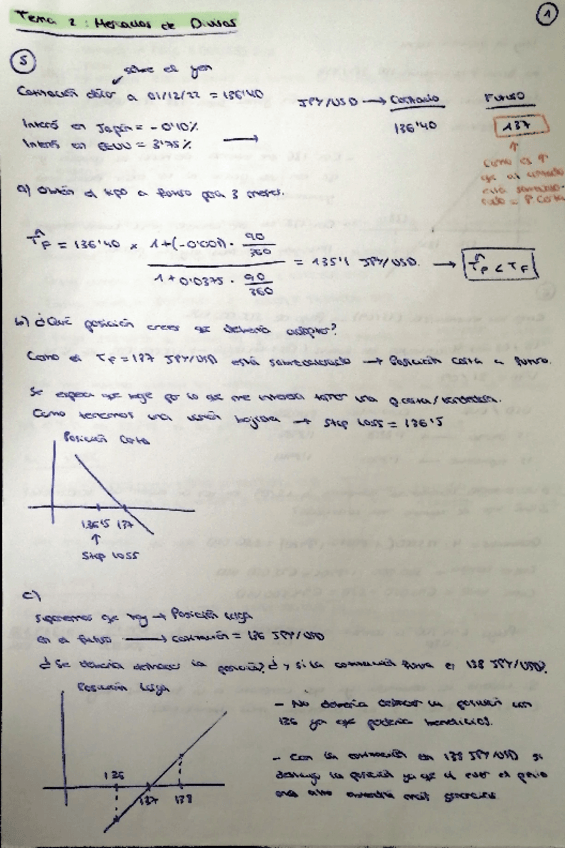 Tema 2: Mercados de Divisas
1
5
sobre el yen
Cotización dólar a 01/12/22 = 136'40
JPY/USD → Contado Futuro
Interés en Japón = -0'10%
136'40 137
Interés en EEUU = 3'75% →
como es ↑
que el contado
está sobrevalo-
rado = P. Corta
a) Obtén el tipo a futuro para 3 meses.
T̂F = 136'40 × 1+(-0'001) · 90/360
1+0'0375 · 90/360
= 135'1 JPY/USD. → T̂F < TF
b) ¿Qué posición crees que debería adoptar?
Como el TF = 137 JPY/USD está sobrevalorado → Posición corta a futuro.
Se espera que baje por lo que me interesa tomar una p. corta/vendedora.
Como tenemos una visión bajista → Stop Loss = 136'5
Posición Corta
136'5 137
↑
Stop Loss
c)
Suponemos que hoy → Posición larga
en el futuro → cotización = 136 JPY/USD
¿Se debería deshacer la posición? ¿y si la cotización fuera de 138 JPY/USD?
Posición Larga
136
137 138
- No debería deshacer la posición con
136 ya que perdería beneficios.
- Con la cotización en 138 JPY/USD si
deshago la posición ya que al el precio
más alto más ganancias